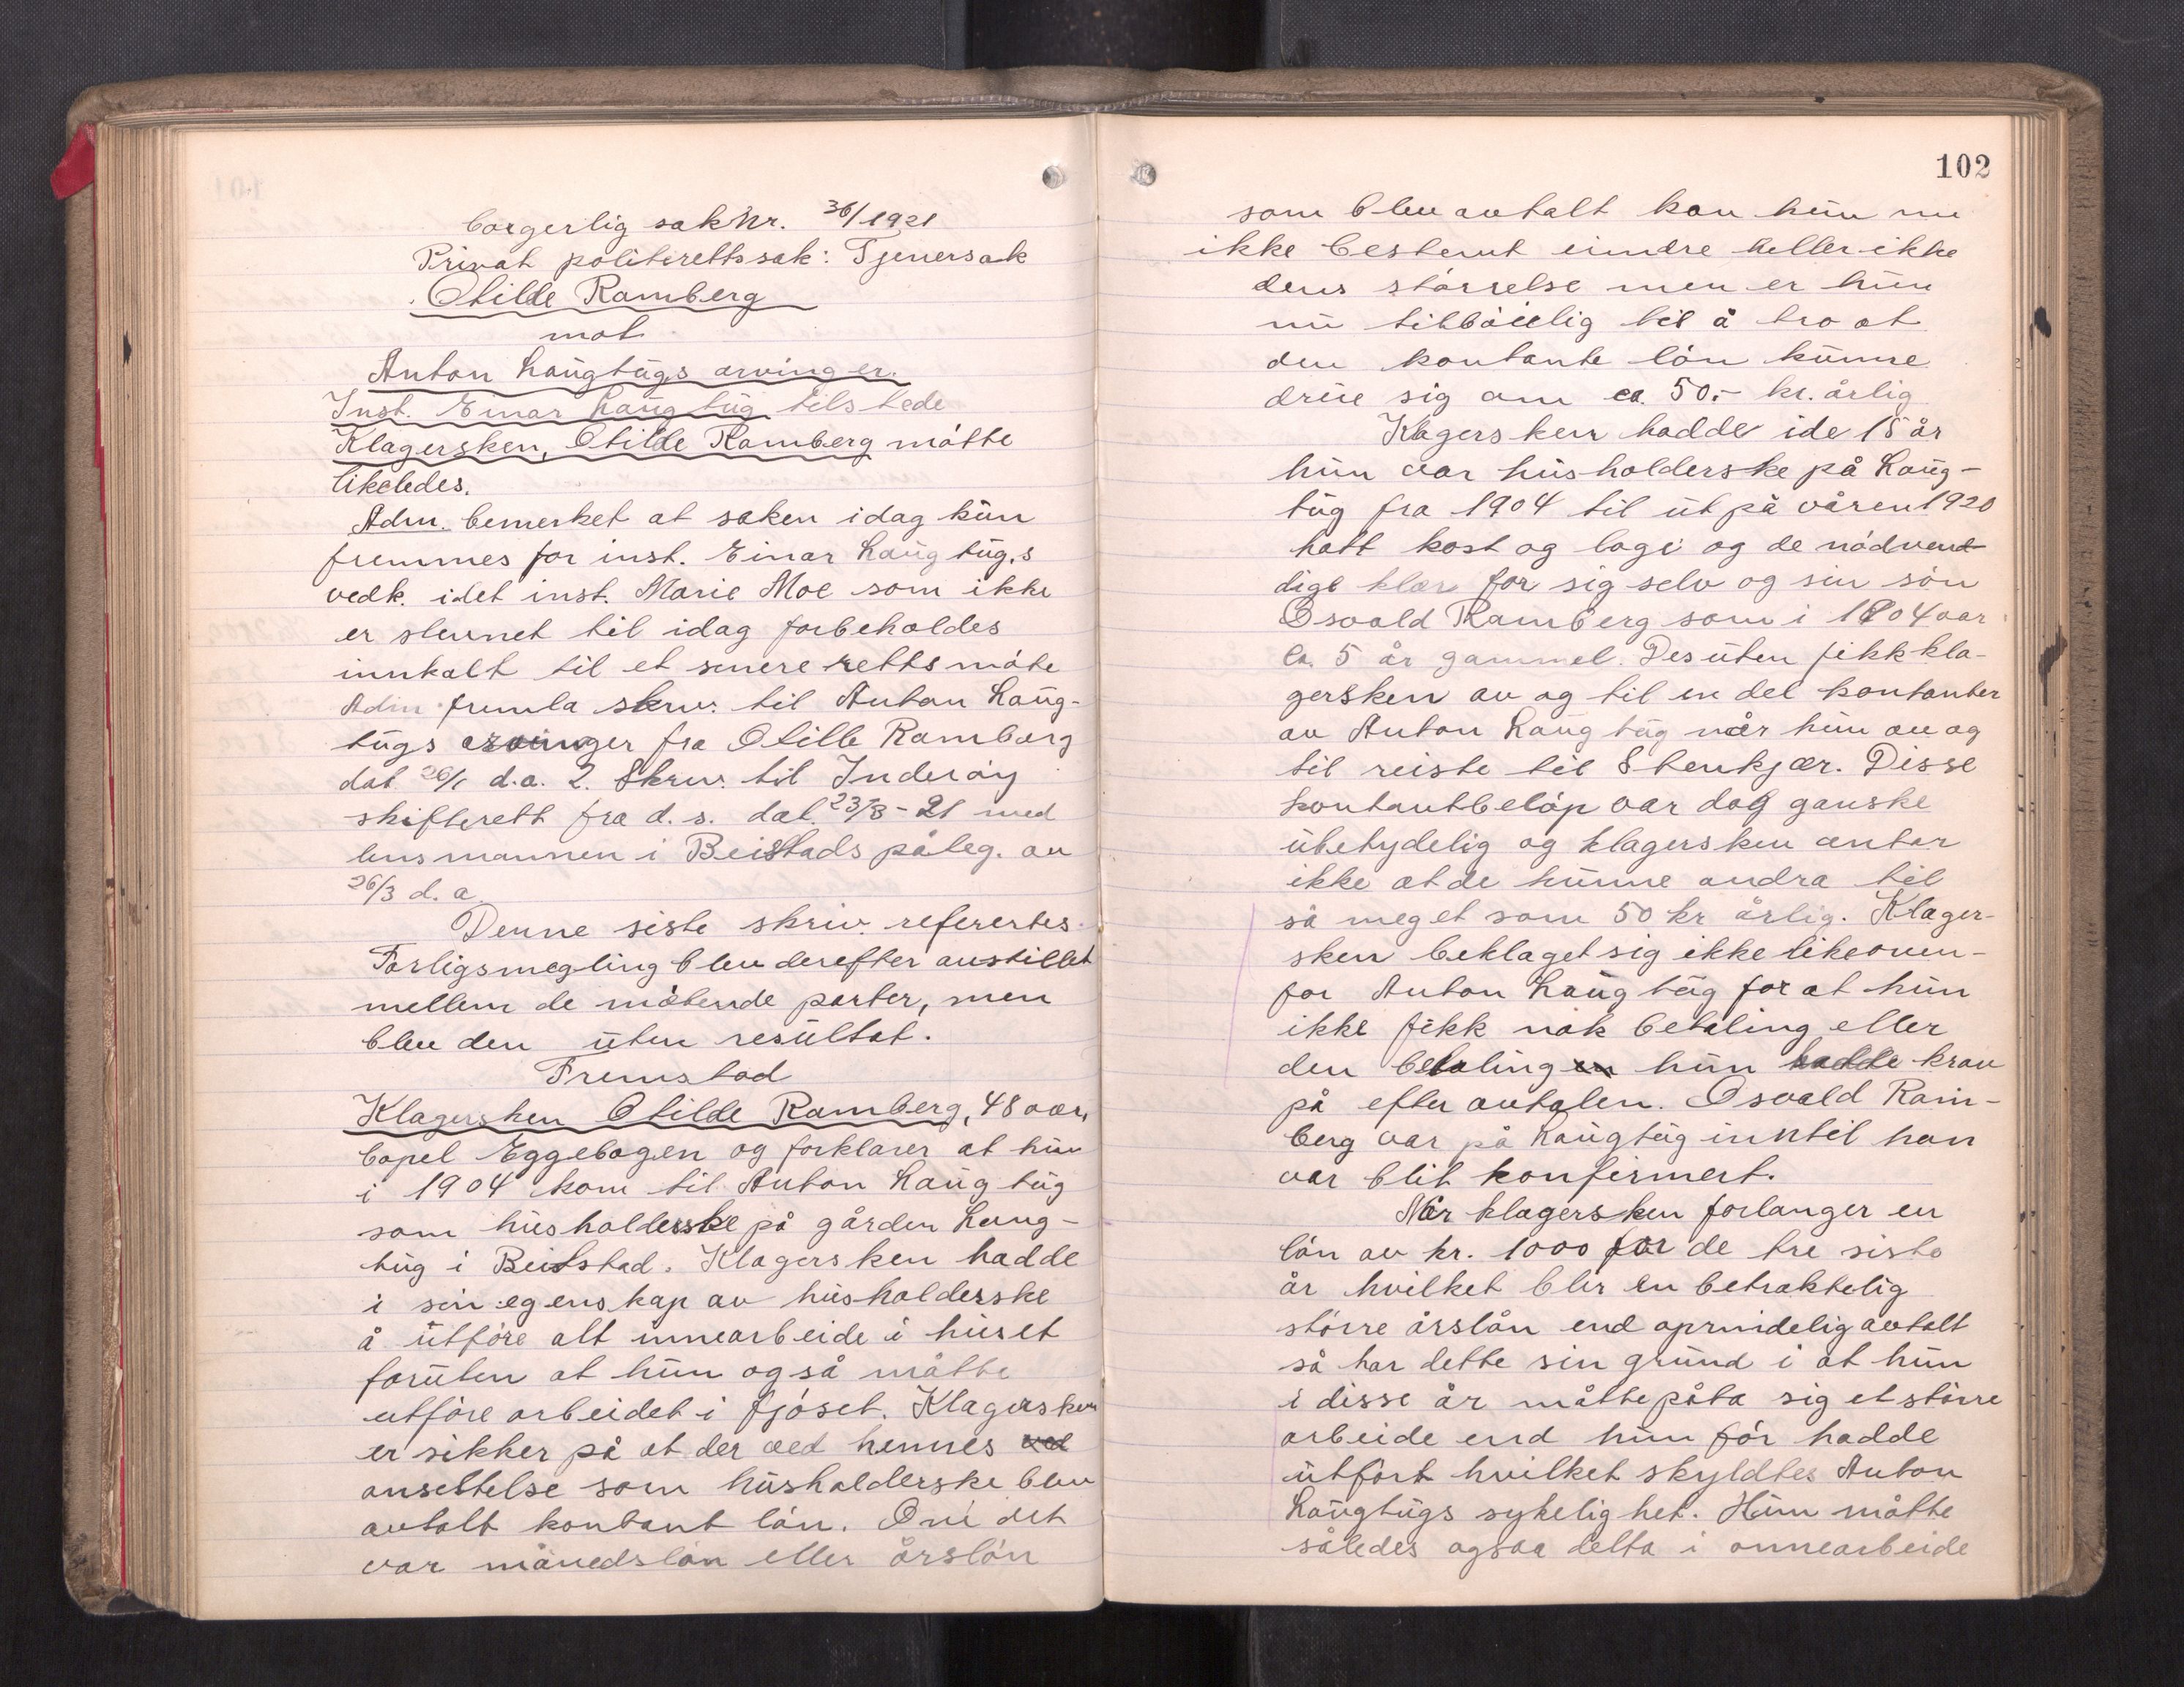 borgerlig sak Nr. 36/1921
Privat politirettssak: Tjenersak
Otilde Ramberg
mot
Anton Langtugs arvinger.
Inst. Einar Langtug tilstede
Klagersken, Otilde Ramberg møtte
likeledes.
Adm. bemerket at saken idag kun
fremmes for inst. Einar Langtug,s
vedk. idet inst. Marie Moe som ikke
er stevnet til idag forbeholdes
innkalt til et senere rettsmøte
Adm fremla skriv. til Anton Lang-
tugs arvinger fra Otille Ramberg
dat 26/1 d.a. 2. Skriv. til Inderøy
skifterett fra d. s. dat. 23/3 - 21 med
lensmannen i Beitstads påteg. av
26/3 d. a
Denne siste skriv. referertes.
Forligsmegling blev derefter anstillet
mellem de møtende parter, men
blev den uten resultat.
Fremstod
Klagersken Otilde Ramberg, 48 aar,
bopel Eggebogen og forklarer at hun
i 1904 kom til Anton Langtug
som husholderske på gården Lang-
tug i Beitstad. Klagersken hadde
i sin egenskap av husholderske
å utføre alt innearbeide i huset
foruten at hun også måtte
utføre arbeidet i fjøset. Klagersken
er sikker på at der ved hennes ved
ansettelse som husholderske blev
avtalt kontant løn. Om det
var månedsløn eller årsløn
102
som blev avtalt kan hun nu
ikke bestemt eindre heller ikke
dens størrelse men er hun
nu tilbøielig til å tro at
den kontante løn kunne
dreie sig om ca. 50.- kr. årlig
Klagersken hadde i de 15 år
hun var husholderske på Lang-
tug fra 1904 til ut på våren 1920
hatt kost og logi og de nødvend-
dige klær for sig selv og sin søn
Osvald Ramberg som i 1904 var
ca. 5 år gammel. Desuten fikk kla-
gersken av og til en del kontanter
av Anton Langtug når hun av og
til reiste til Stenkjær. Disse
kontantbeløp var dog ganske
ubetydelig og klagersken antar
ikke at de kunne andra til
så meget som 50 kr årlig. Klager-
sken beklaget sig ikke likeoven-
for Anton Langtug for at hun
ikke fikk nok betaling eller
den betalingen hun hadde krav
på efter avtalen. Osvald Ram-
berg var på Langtug inntil han
var blit konfirmert.
Når klagersken forlanger en
løn av kr. 1000 for de tre siste
år hvilket blir en betraktelig
større årsløn end oprindelig avtalt
så har dette sin grund i at hun
i disse år måtte påta sig et større
arbeide end hun før hadde
utført hvilket skyldtes Anton
Langtugs sykelighet. Hun måtte
således ogsaa delta i onnearbeide